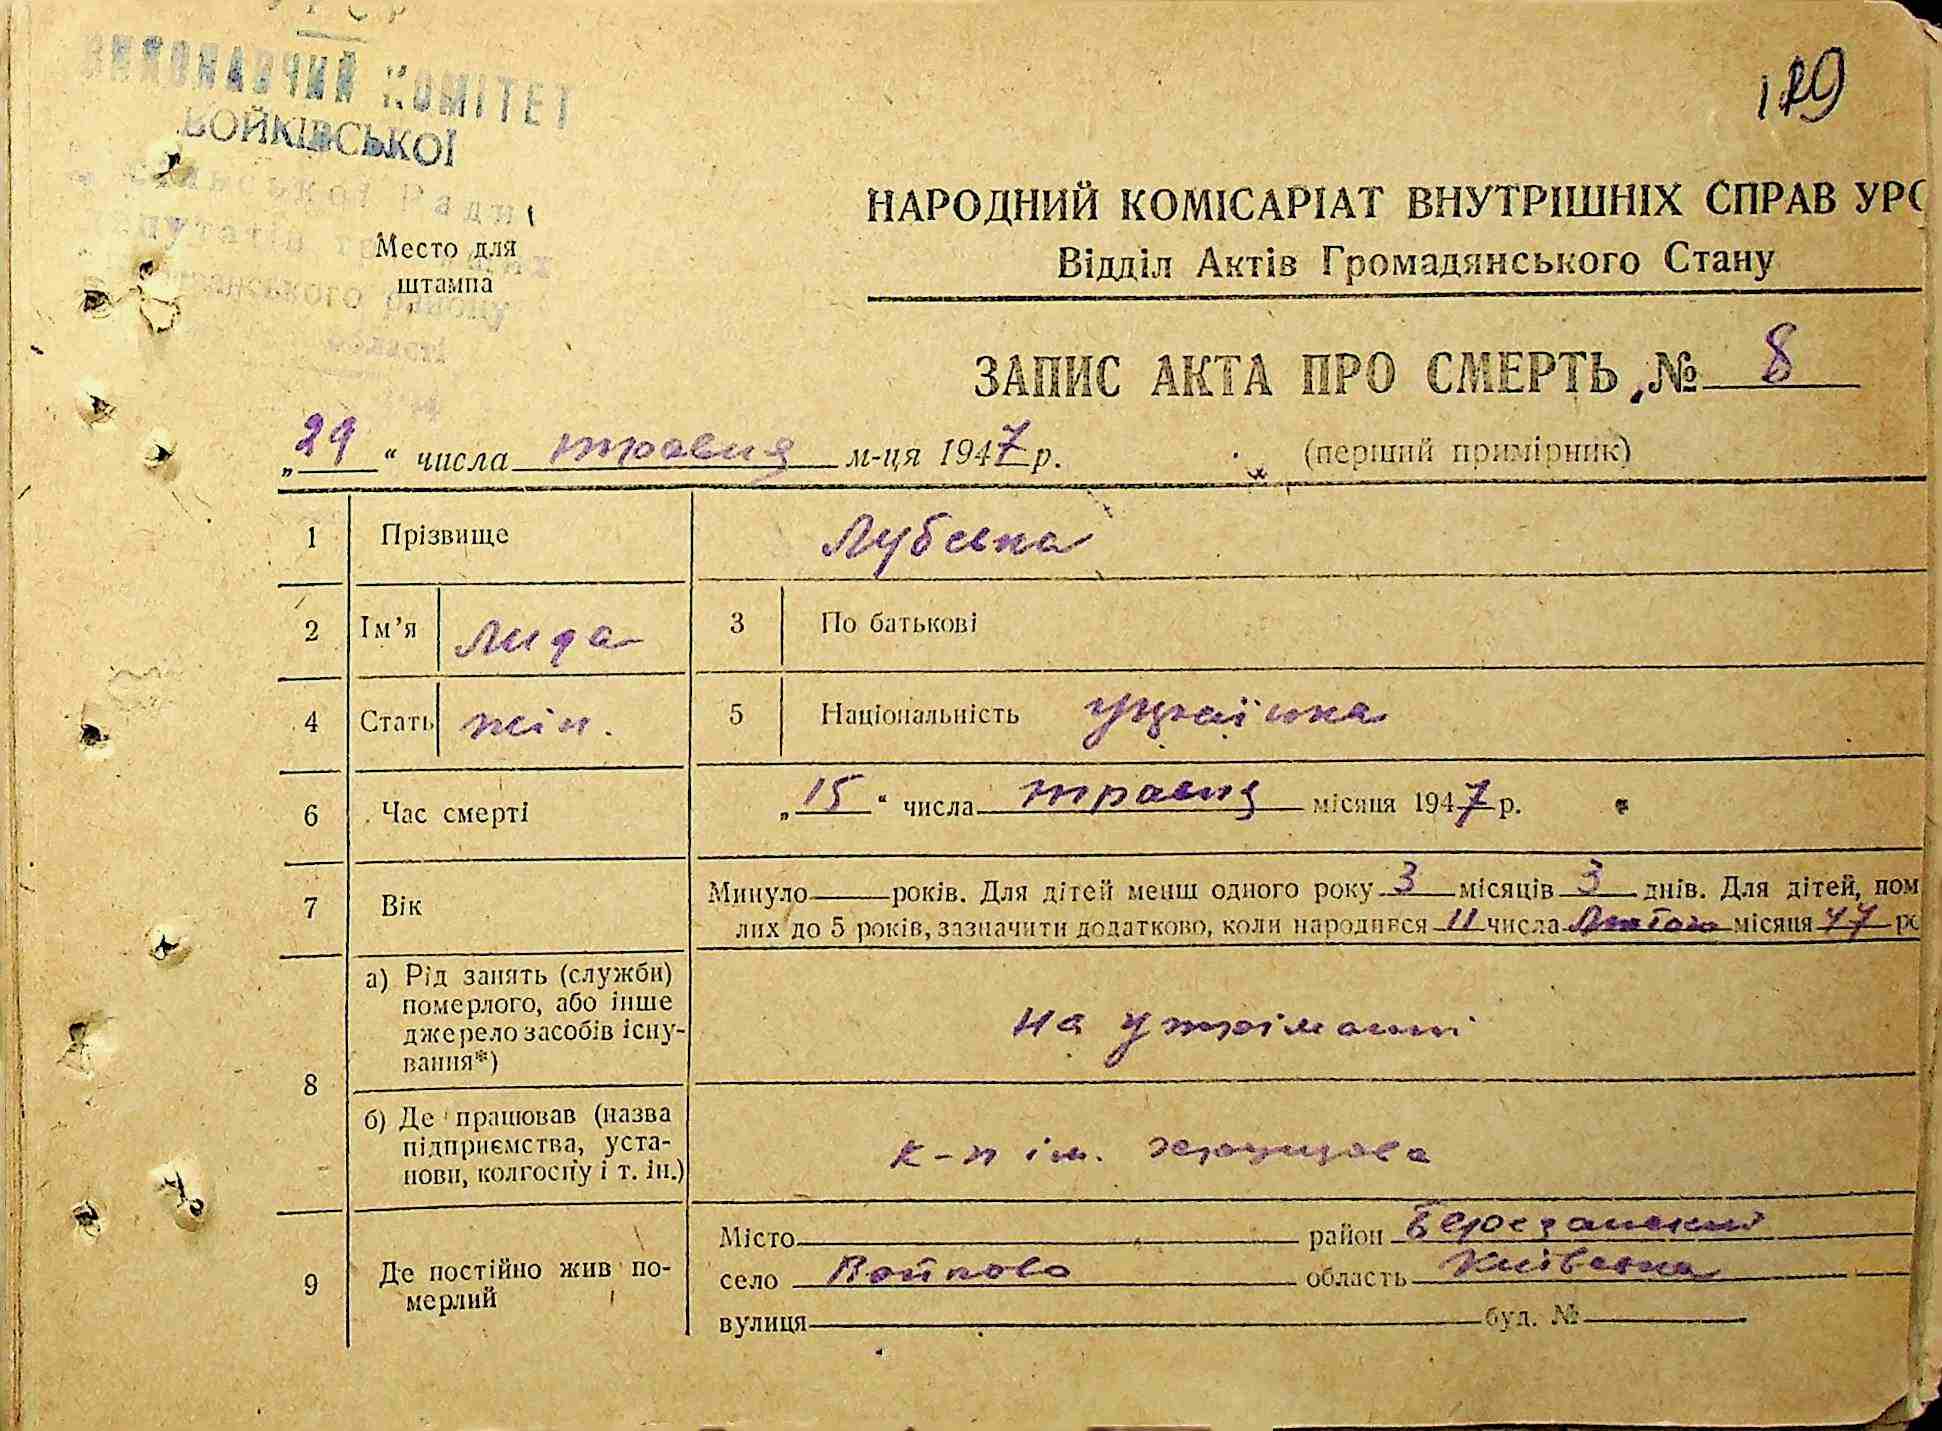 УРСР
ВИКОНАВЧИЙ КОМІТЕТ
ВОЙКІВСЬКОЇ
Сільської Ради
Место для
штампа
району
НАРОДНИЙ КОМІСАРІАТ ВНУТРІШНІХ СПРАВ УРС
Відділ Актів Громадянського Стану
ЗАПИС АКТА ПРО СМЕРТЬ № 8
„29“ числа травня м-ця 1947 р. (перший примірник)
1 Прізвище
2 Ім’я Лида 3 По батькові
4 Стать жін. 5 Національність українка
6 Час смерті „15“ числа травня місяця 1947 р.
7 Вік Минуло років. Для дітей менш одного року 3 місяців 3 днів. Для дітей, пом
лих до 5 років, зазначити додатково, коли народився 11 числа Лютого місяця 47 ро
8 а) Рід занять (служби)
померлого, або інше
джерело засобів існу-
вання*)
на утріманні
б) Де працював (назва
підприємства, уста-
нови, колгоспу і т. ін.)
к-п ім. Хрущова
9 Де постійно жив по-
мерлий
Місто район Березанский
село Войково область Київська
вулиця буд. №